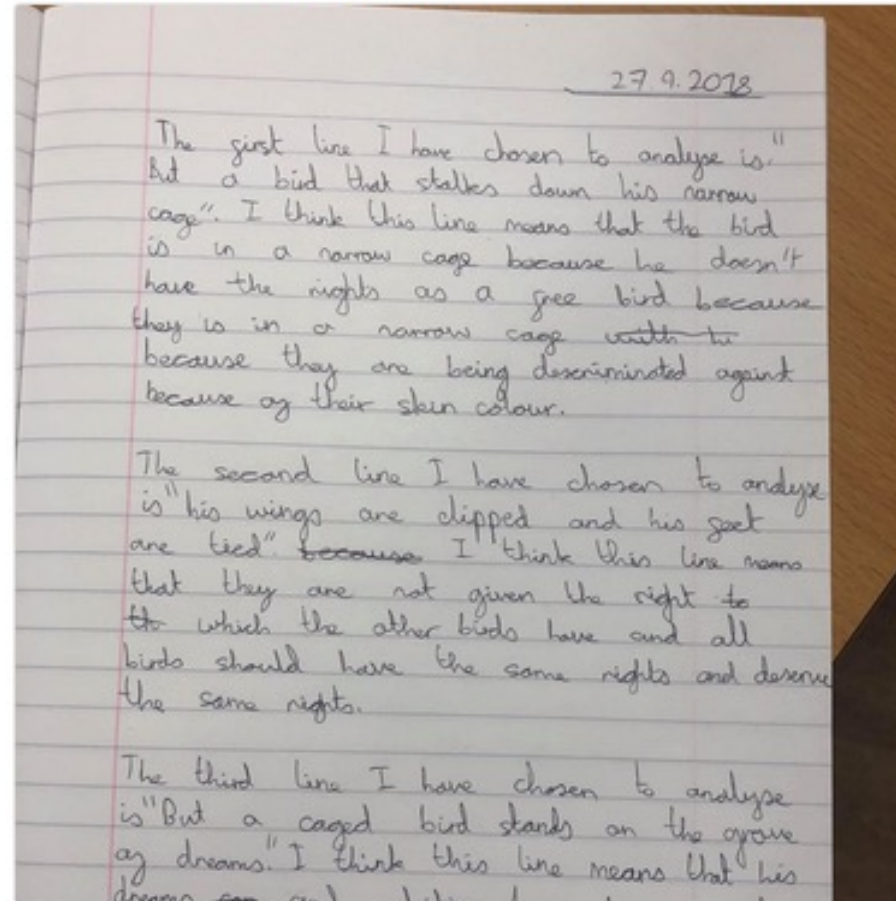 27.9.2018
The first line I have chosen to analyse is."
But a bird that stalks down his narrow
cage". I think this line means that the bird
is in a narrow cage because he doesn't
have the rights as a free bird because
they is in a narrow cage
because they are being descriminated against
because of their skin colour.
The second line I have chosen to analyse
is "his wings are clipped and his feet
are tied". because I think this line means
that they are not given the right to
to which the other birds have and all
birds should have the same rights and deserve
the same rights.
The third line I have chosen to analyse
is "But a caged bird stands on the grave
of dreams." I think this line means that his
dreams